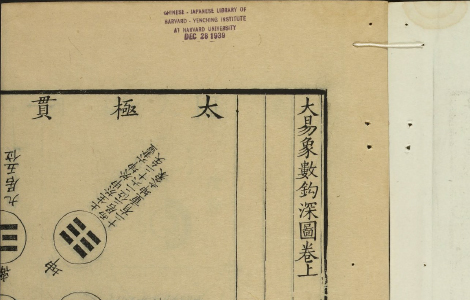 CHINESE - JAPANESE LIBRARY OF
HARVARD - YENCHING INSTITUTE
AT HARVARD UNIVERSITY
DEC 28 1939
大易象數鈎深圖卷上
太極貫
九居五位
坤